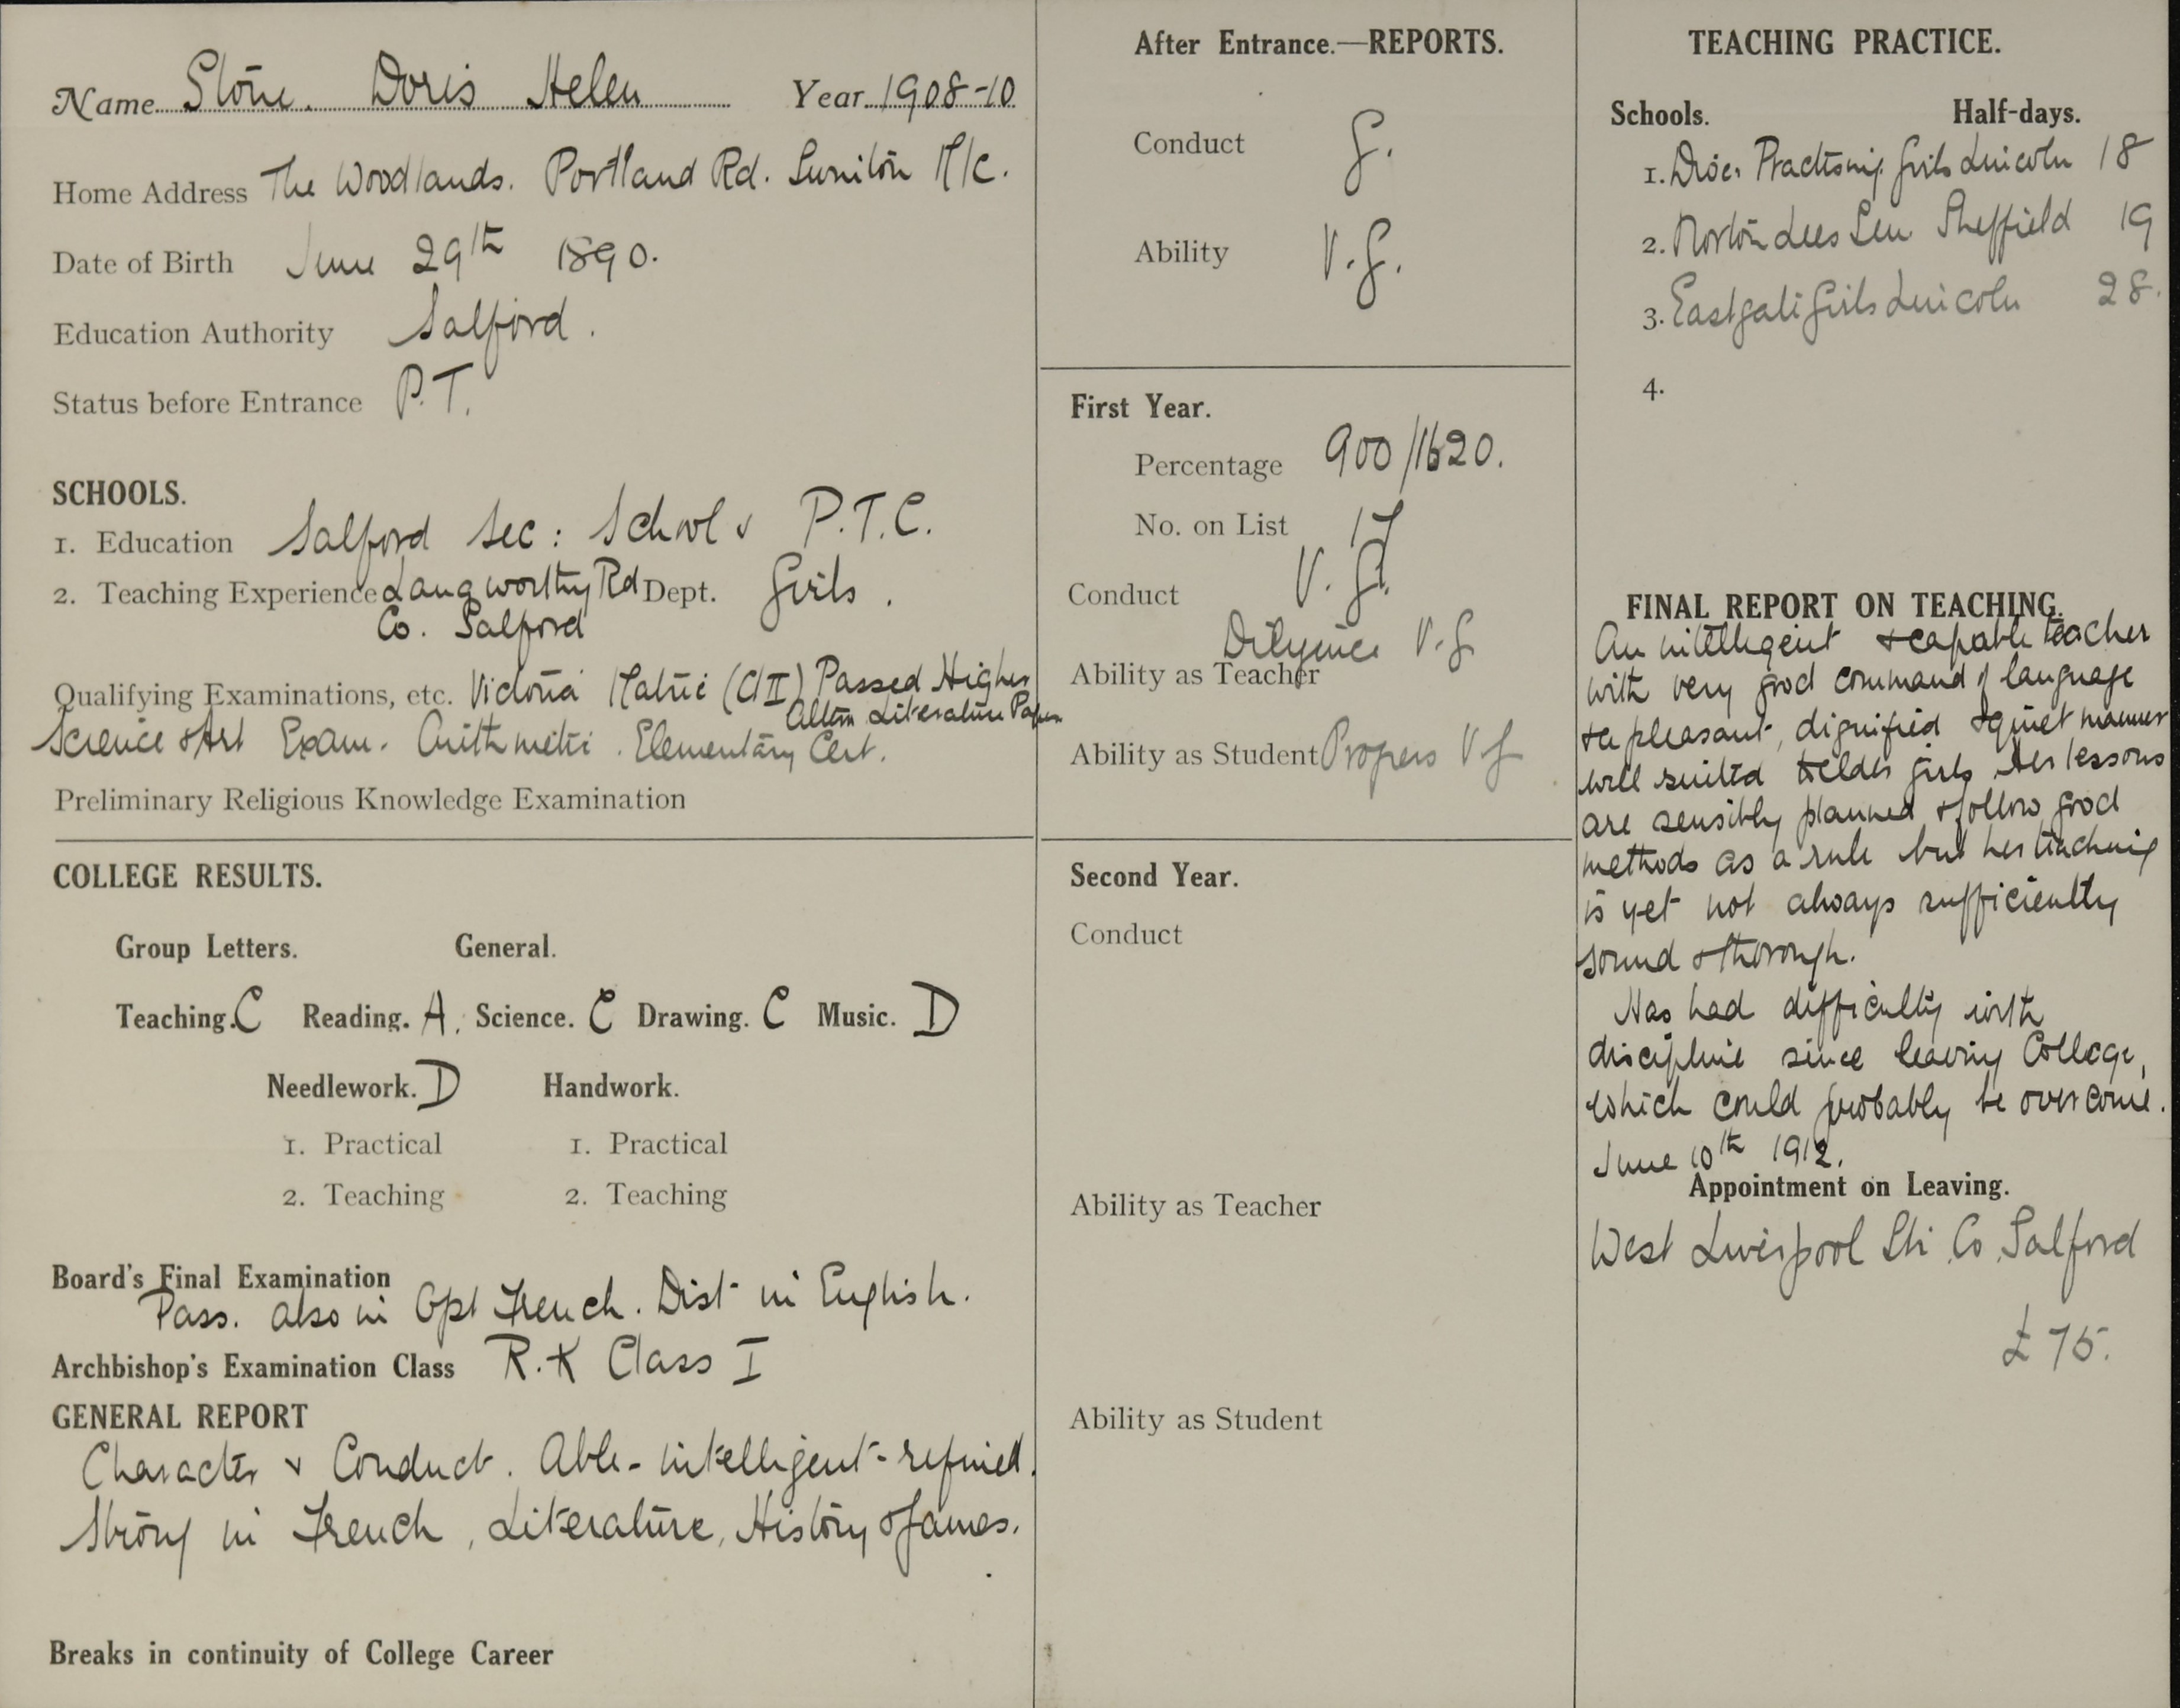 Name Stone. Doris Helen Year 1908-10
Home Address The Woodlands. Portland Rd. Swinton M/c.
Date of Birth June 29th 1890.
Education Authority Salford.
Status before Entrance P.T.
SCHOOLS.
1. Education Salford Sec: School & P.T.C.
2. Teaching Experience Langworthy Rd Dept. Girls.
Co. Salford
Qualifying Examinations, etc. Victoria Matric (Cl II) Passed Higher
Altern Literature Paper
Science & Art Exam. Arithmetic. Elementary Cert.
Preliminary Religious Knowledge Examination
COLLEGE RESULTS.
Group Letters. General.
Teaching. C Reading. A. Science. C Drawing. C Music. D
Needlework. D Handwork.
1. Practical 1. Practical
2. Teaching 2. Teaching
Board's Final Examination
Pass. also in Opt French. Dist in English.
Archbishop's Examination Class R.K Class I
GENERAL REPORT
Character & Conduct. Able - intelligent - refined.
Strong in French, Literature, History & Games.
Breaks in continuity of College Career
After Entrance.—REPORTS.
Conduct G.
Ability V.G.
First Year.
Percentage 900/1620.
No. on List 17
Conduct V.G.
Diligence V.G
Ability as Teacher
Ability as Student Progress V G
Second Year.
Conduct
Ability as Teacher
Ability as Student
TEACHING PRACTICE.
Schools. Half-days.
1. Dioc. Practising Girls Lincoln 18
2. Norton Lees Sheffield 19
3. Eastgate Girls Lincoln 28.
4.
FINAL REPORT ON TEACHING.
An intelligent & capable teacher
with very good command of language
& a pleasant, dignified & quiet manner
well suited to elder girls. Her lessons
are sensibly planned & follow good
methods as a rule but her teaching
is yet not always sufficiently
sound & thorough.
Has had difficulty with
discipline since leaving College,
which could probably be overcome.
June 10th 1912.
Appointment on Leaving.
West Liverpool St. Co. Salford
£75.